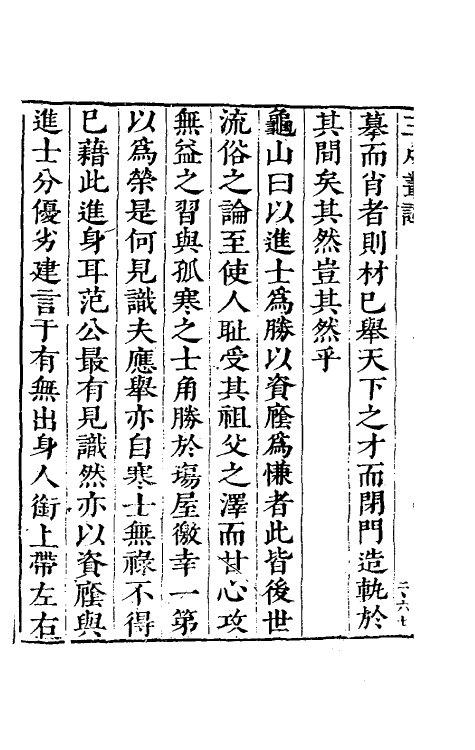 摹而肖者則材已舉天下之才而閉門造軌於
其間矣其然豈其然乎
龜山曰以進士爲勝以資廕爲慊者此皆後世
流俗之論至使人恥受其祖父之澤而甘心攻
無益之習與孤寒之士角勝於場屋徼幸一第
以爲榮是何見識夫應舉亦自寒士無祿不得
已藉此進身耳范公最有見識然亦以資廕與
進士分優劣建言于有無出身人銜上帶左右